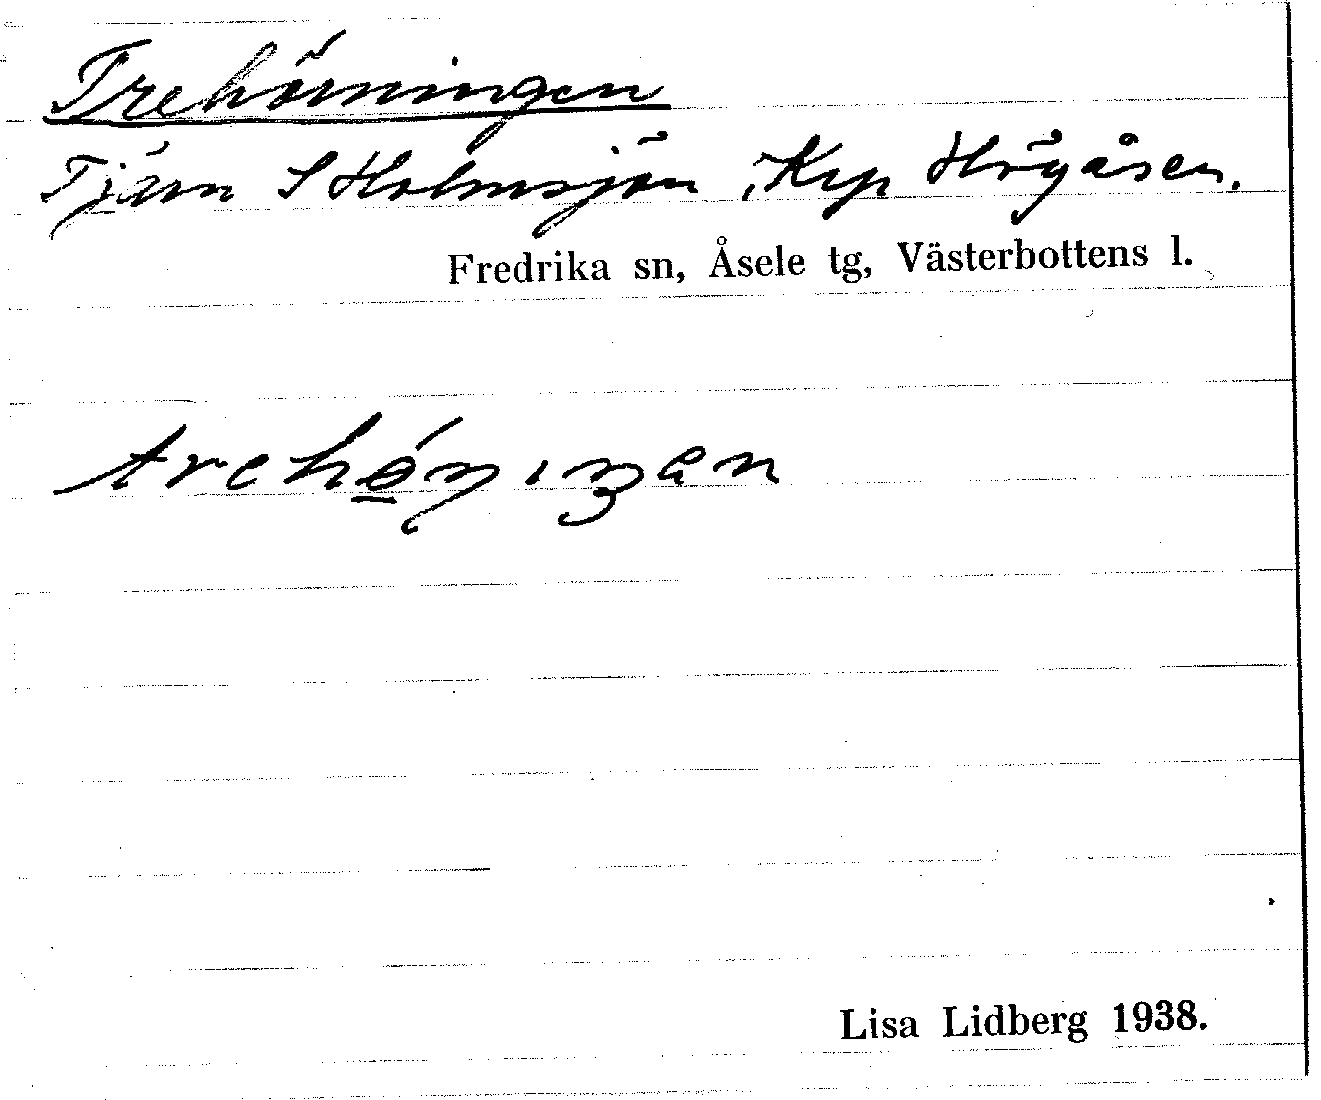 Trehörningen
Tjärn S Holmsjön, Krp Högåsen.
Fredrika sn, Åsele tg, Västerbottens l.
Lisa Lidberg 1938.